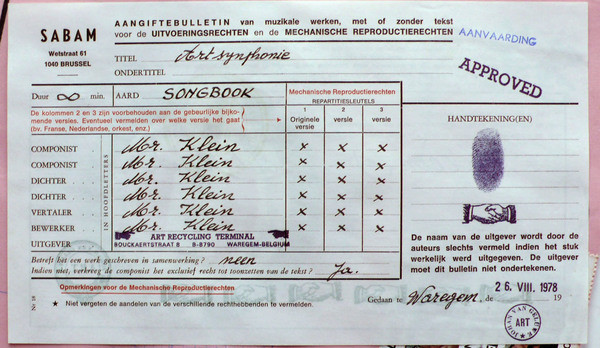 SABAM
Wetstraat 61
1040 BRUSSEL
AANGIFTEBULLETIN van muzikale werken, met of zonder tekst
voor de UITVOERINGSRECHTEN en de MECHANISCHE REPRODUCTIERECHTEN
AANVAARDING
TITEL Artsymphonie
ONDERTITEL
APPROVED
Duur ∞ min. AARD SONGBOOK
Mechanische Reproductierechten
REPARTITIESLEUTELS
De kolommen 2 en 3 zijn voorbehouden aan de gebeurlijke bijko-
mende versies. Eventueel vermelden over welke versie het gaat
(bv. Franse, Nederlandse, orkest, enz.)
1 2 3
Originele versie versie versie
HANDTEKENING(EN)
IN HOOFDLETTERS
COMPONIST Mr. Klein x x x
COMPONIST Mr. Klein x x x
DICHTER Mr. Klein x x x
DICHTER Mr. Klein x x x
VERTALER Mr. Klein x x x
BEWERKER Mr. Klein x x x
UITGEVER ART RECYCLING TERMINAL
BOUCKAERTSTRAAT 8 B-8790 WAREGEM-BELGIUM
De naam van de uitgever wordt door de
auteurs slechts vermeld indien het stuk
werkelijk werd uitgegeven. De uitgever
moet dit bulletin niet ondertekenen.
Betreft het een werk geschreven in samenwerking? neen
Indien niet, verkreeg de componist het exclusief recht tot toonzetten van de tekst? Ja.
Opmerkingen voor de Mechanische Reproductierechten
★ Niet vergeten de aandelen van de verschillende rechthebbenden te vermelden.
Gedaan te Waregem, de 26. VIII. 1978 19
JOHAN VAN GELUWE
ART